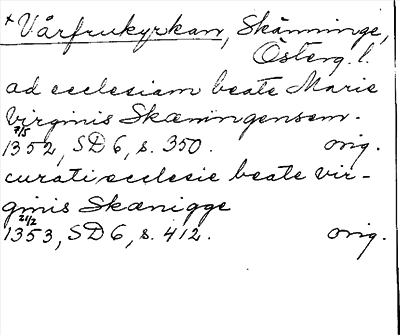 *Vårfrukyrkan, Skänninge,
Österg. l.
ad ecclesiam beate Marie
Virginis Skæningensem.
7/5
1352, SD 6, s. 350. orig.
curati ecclesie beate vir-
ginis Skænigge
21/2
1353, SD 6, s. 412. orig.